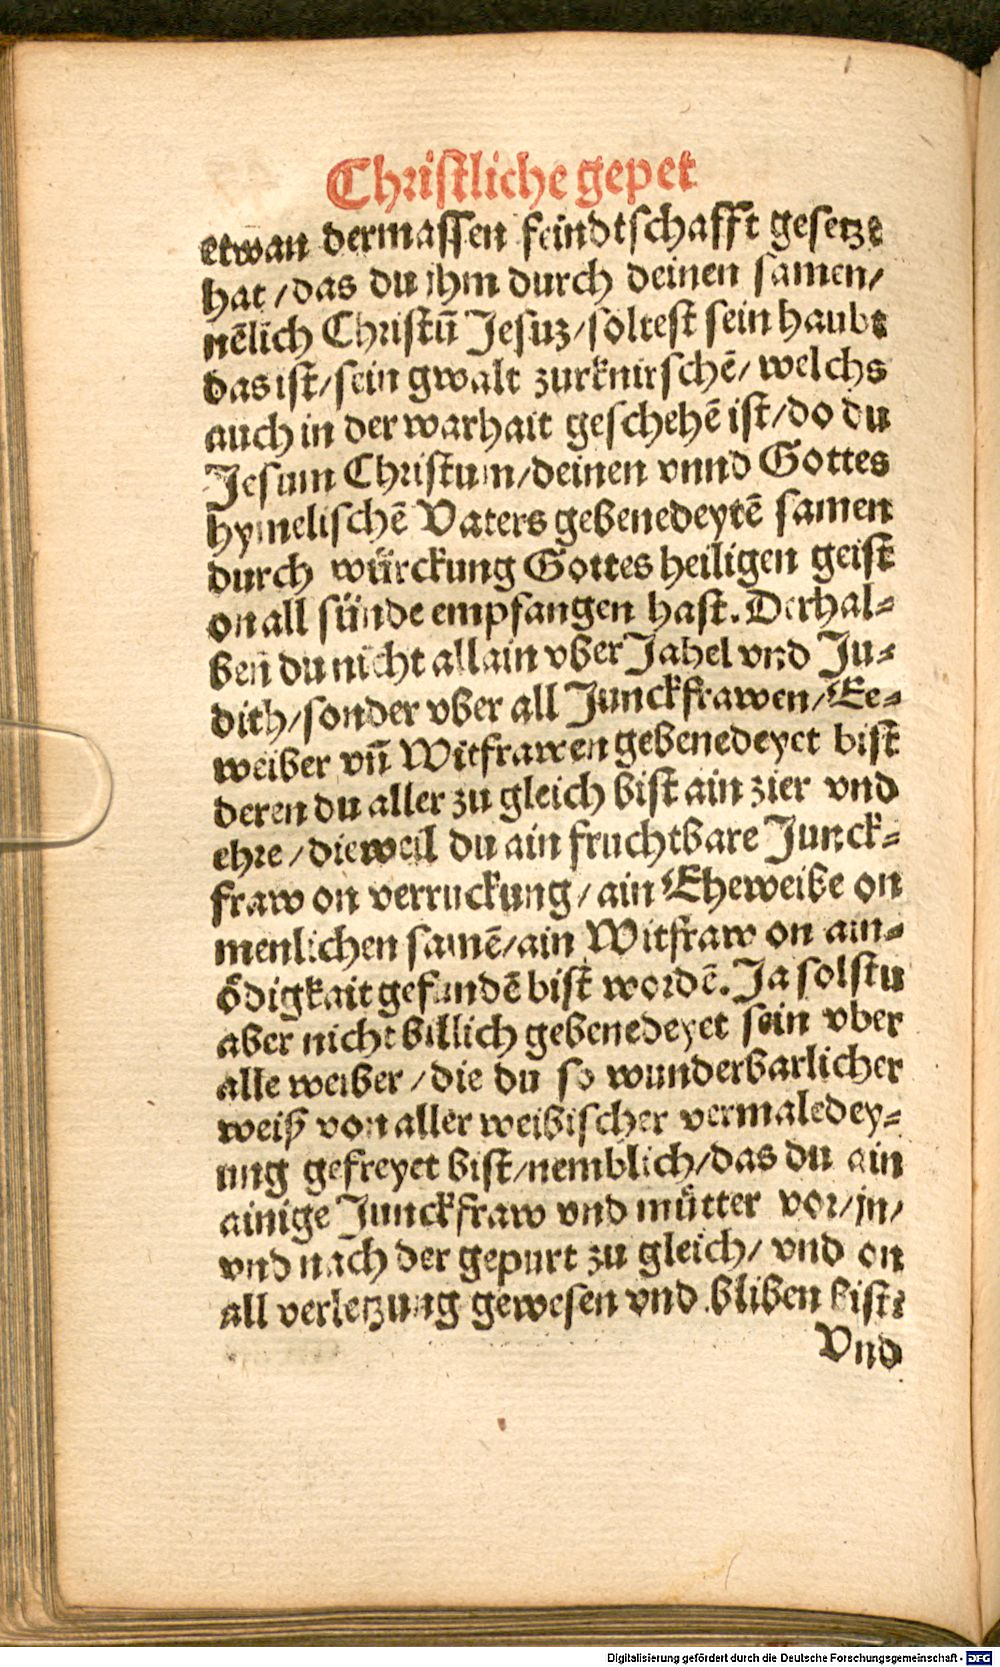 Christliche gepet
etwan dermassen feindtschafft gesetzt
hat / das du ihm durch deinen samen /
nẽlich Christũ Jesuz / soltest sein haubt
das ist / sein gwalt zurknirschẽ / welchs
auch in der warhait geschehẽ ist / do du
Jesum Christum / deinen vnnd Gottes
hymelischẽ Vaters gebenedeytẽ samen
durch würckung Gottes heiligen geist
on all sünde empfangen hast. Derhal-
ben du nicht allain vber Jahel vnd Ju-
dith / sonder vber all Junckfrawen / Ee-
weiber vñ Witfrawen gebenedeyet bist
deren du aller zu gleich bist ain zier vnd
ehre / dieweil du ain fruchtbare Junck-
fraw on verruckung / ain Eheweibe on
menlichen samẽ / ain Witfraw on ain-
ödigkait gefundẽ bist wordẽ. Ja solstu
aber nicht billich gebenedeyet sein vber
alle weiber / die du so wunderbarlicher
weiß von aller weibischer vermaledey-
ung gefreyet bist / nemblich / das du ain
ainige Junckfraw vnd mütter vor / jn /
vnd nach der gepurt zu gleich / vnd on
all verletzung gewesen vnd bliben bist:
Vnd
Digitalisierung gefördert durch die Deutsche Forschungsgemeinschaft - DFG